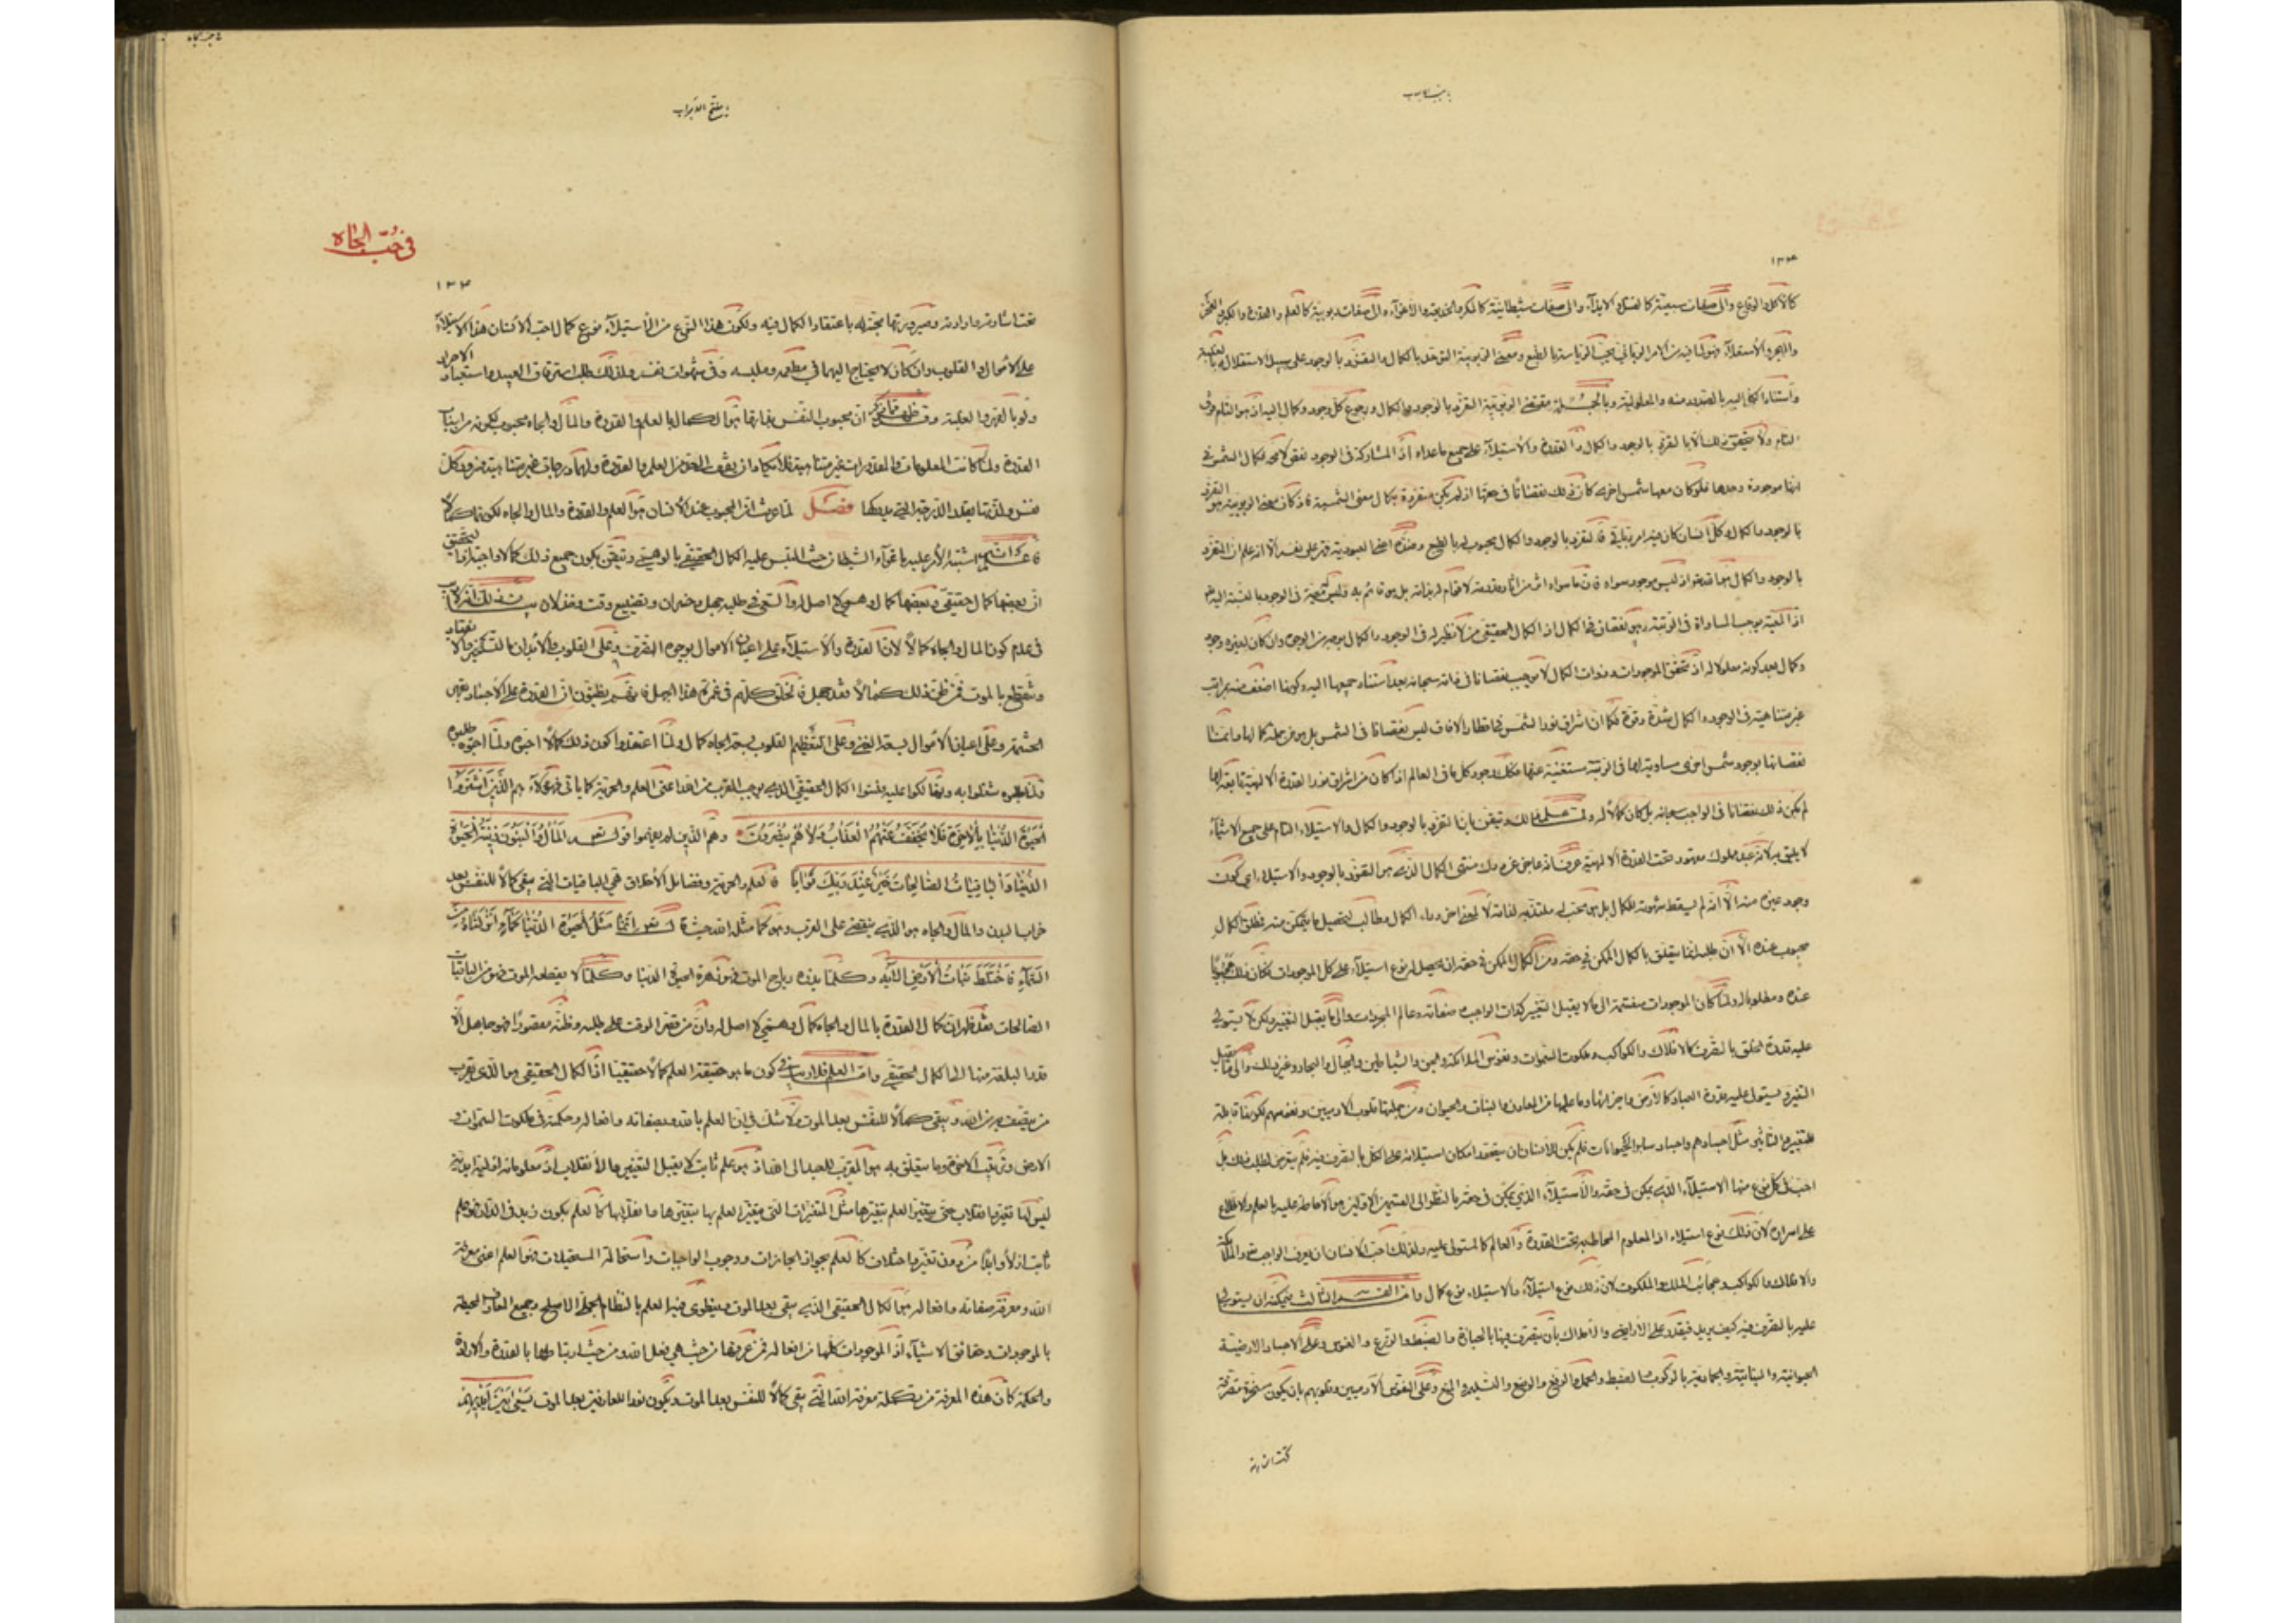 كالأكل والوقاع والى صفات سبعية كالقتل والايذاء والى صفات شيطانية كالمكر والخديعة والاغواء والى صفات ربوبية كالعلم والقدرة والكبر والعز
والفخر والاستعلاء فهو لما فيه من الامر الرباني يحب الربوبية بالطبع ومعنى الربوبية التوحد بالكمال والتفرد بالوجود على سبيل الاستقلال
واستناد الكل اليه بالصدور منه والمعلولية وبالجملة مقتضى الربوبية التفرد بالوجود والكمال ورجوع كل وجود وكمال اليه اذ هو التام فوق
التمام ولا يتحقق ذلك الا بالتفرد بالوجود والكمال والقدرة والاستيلاء على جميع ما عداه اذ المشاركة في الوجود نقص لا محالة فكمال الشمس في
انها موجودة وحدها فلو كان معها شمس اخرى كان ذلك نقصانا في حقها اذ لم يكن منفردة بكمال معنى الشمسية فاذ كان معنى الربوبية هو التفرد
بالوجود والكمال وكل انسان كان فيه امر رباني فالتفرد بالوجود والكمال محبوب له بالطبع
بالوجود والكمال هو الله تعالى اذ ليس موجود سواه فان ما سواه اثر من آثار قدرته لا قوام له بذاته بل هو قائم به فليس معية في الوجود بالنسبة اليه تعالى
اذ المعية يوجب المساواة في الرتبة وهو نقصان في الكمال اذ الكمال الحقيقي من لا نظير له في الوجود والكمال بوجه من الوجوه وان كان لغيره وجود
وكمال بعد كونه معلولا له اذ تحقق الموجودات وذوات الكمال لا يوجب نقصانا في ذاته سبحانه بعد استناد جميعها اليه وكونها اضعف منه بمراتب
غير متناهية في الوجود والكمال شدة وقوة فكما ان اشراق نور الشمس في اقطار الافاق ليس نقصانا في الشمس بل هو من جملة كمالها وانما
نقصانها بوجود شمس اخرى مساوية لها في الرتبة مستغنية عنها فكذلك وجود كل ما في العالم اذا كان من اشراق نور القدرة الالهية تابعا لها
لم يكن ذلك نقصانا في الواجب سبحانه بل كان كمالا له ولما علم ذلك وتيقن بان التفرد بالوجود والكمال والاستيلاء التام على جميع الاشياء
لا يليق به لانه عبد مملوك مقهور تحت القدرة الالهية عرف انه عاجز عن درك منتهى الكمال الذي هو التفرد بالوجود والاستيلاء اي كون
وجود غيره منه الا انه لم يسقط شهوته للكمال بل هو محب له
محبوب عنده الا ان طلبه انما يتعلق بالكمال الممكن في حقه ومن الكمال الممكن في حقه ان يحصل له نوع استيلاء على كل الموجودات فكان ذلك محبوبا
عنده ومطلوبا له ولما كان الموجودات منقسمة الى ما لا يقبل التغيير كذات الواجب وصفاته وعالم المجردات والى ما يقبل التغيير ولكن لا يستولي
عليه قدرة الخلق بالتصرف كالافلاك والكواكب وملكوت السموات ونفوس الملائكة والجن والشياطين والجبال والبحار وغير ذلك والى ما يقبل
التغيير ويستولي عليه قدرة العباد كالارض واجزائها وما عليها من المعادن والنبات والحيوان ومن جملتها قلوب الادميين ونفوسهم لكونها قابلة
للتغير والتأثير مثل اجسادهم واجساد سائر الحيوانات فلم يكن للانسان ان يعتقد امكان استيلائه على الكل بالتصرف فيه فلم يتعرض لطلب ذلك بل
احب في كل نوع منها الاستيلاء الذي يمكن في حقه والاستيلاء الذي يمكن في حقه بالنظر الى القسمين الاولين هو الاحاطة عليه بالعلم والاطلاع
على اسراره لان ذلك نوع استيلاء اذ المعلوم المحاط به تحت القدرة والعالم كالمستولي عليه ولذلك احب الانسان ان يعرف الواجب تعالى والملائكة
والافلاك والكواكب وعجائب الملك والملكوت لان ذلك نوع استيلاء والاستيلاء نوع كمال واما القسم الثالث فيمكنه ان يستولي
عليه بالتصرف فيه كيف يريد فيقدر على الاراضي والاملاك بان يتصرف فيها بالحيازة والضبط والزرع والغرس وعلى الاجساد الارضية
الحيوانية والنباتية والجمادية بالركوب والضبط والحمل والرفع والوضع والتسليم والمنع وعلى نفوس الآدميين وقلوبهم بان يكون مسخرة متصرفة
تحت اشارته
في حب الجاه
تحت اشارته وارادته وصيرورتها محبة له باعتقاد الكمال فيه ولكون هذا النوع من الاستيلاء نوع كمال احب الانسان هذا الاستيلاء
على الاموال والقلوب وان كان لا يحتاج اليهما في مطعمه وملبسه وفي شهوات نفسه ولذلك طلب استرقاق العبيد واستعباد الاحرار
ولو بالقهر والغلبة وقد ظهر مما ذكر ان محبوب النفس بذاتها هو الكمال بالعلم والقدرة والمال والجاه محبوب لكونه من اسباب
القدرة ولما كانت المعلومات والمقدورات غير متناهية فلا يكاد ان يقف العزم من العلم والقدرة ولهما درجات غير متناهية فسرور كل
نفس ولذتها بقدر الدرجة التي يدركها فصل لما عرفت ان المحبوب عند الانسان هو العلم والقدرة والمال والجاه لكونها كمالا
فاعلم انه اشتبه الامر عليه باغواء الشيطان حيث التبس عليه الكمال الحقيقي بالوهمي وتيقن بكون جميع ذلك كمالا واحبه اذ التحقيق
ان بعضها كمال حقيقي وبعضها كمال وهمي لا اصل له والسعي في طلبه جهل وخسران وتضييع وقت وخذلان بيان ذلك انه لا ريب
في عدم كون المال والجاه كمالا لان القدرة والاستيلاء على اعيان الاموال بوجوه التصرف وعلى القلوب والابدان بالتسخير والانقياد
وينقطع بالموت فمن ظن ذلك كمالا فقد جهل فالخلق كلهم في غمرة هذا الجهل فانهم يظنون ان القدرة على الاجساد بقهر
الحشمة وعلى اعيان الاموال بسعة الغنى وعلى تعظيم القلوب بسعة الجاه كمال ولما اعتقدوا كون ذلك كمالا احبوه ولما احبوه طلبوه
ولما طلبوه شغلوا به وتهالكوا عليه فنسوا الكمال الحقيقي الذي يوجب القرب من الله اعني العلم والحرية كما يأتي فهؤلاء هم الَّذينَ اشْتَرَوُا
الْحَيٰوةَ الدُّنْيا بِالْاٰخِرَةِ فَلا يُخَفَّفُ عَنْهُمُ الْعَذابُ وَلا هُمْ يُنْصَرُونَ وهم الذين لم يفهموا قوله تعالى الْمالُ وَالْبَنُونَ زينَةُ الْحَيٰوةِ
الدُّنْيا وَالْباقِياتُ الصّالِحاتُ خَيْرٌ عِنْدَ رَبِّكَ ثَوابًا فالعلم والحرية وفضائل الاخلاق هي الباقيات التي يبقى كمالا للنفس بعد
خراب البدن والمال والجاه هو الذي ينقضي على القرب وهو كما مثله الله حيث قال تعالى اِنَّما مَثَلُ الْحَيٰوةِ الدُّنْيا كَماءٍ اَنْزَلْناهُ مِنَ
السَّماءِ فَاخْتَلَطَ بِهِ نَباتُ الْاَرْضِ الآية وكلما يذره رياح الموت فهو زهرة الحيوة الدنيا وكلما لا يقطعه الموت فهو من الباقيات
الصالحات فقد ظهر ان كمال القدرة بالمال والجاه كمال وهمي لا اصل له وان من قصر الوقت على طلبه وظنه مقصودا فهو جاهل الا
قدر البلغة منها الى الكمال الحقيقي واما العلم فلا ريب في كون ما هو حقيقة العلم كمالا حقيقيا اذ الكمال الحقيقي هو الذي يقرب
من يتصف به من الله ويبقى كمالا للنفس بعد الموت ولا شك في ان العلم بالله وبصفاته وافعاله وحكمته في ملكوت السموات و
الارض وترتيب الدنيا والاخرة وما يتعلق به هو المقرب للعبد الى الله اذ هو علم ثابت لا يقبل التغير والانقلاب اذ معلوماته ازلية ابدية
ليس لها تغير وانقلاب حتى يتغير العلم بتغيرها مثل المتغيرات التي يتغير العلم بها بتغيرها وانقلابها كالعلم بكون زيد في الدار فهو علم
ثابت ازلا وابدا من دون تغير واختلاف كالعلم بجواز الجائزات ووجوب الواجبات واستحالة المستحيلات فهو العلم اعني معرفة
الله ومعرفة صفاته وافعاله هو الكمال الحقيقي الذي يبقى بعد الموت وينطوي فيه العلم بالنظام الجملي الاصلح وجميع المعارف المحيطة
بالموجودات وحقائق الاشياء اذ الموجودات كلها من افعاله فمن عرفها من حيث هي فعل الله ومن حيث ارتباطها بالقدرة والارادة
والحكمة كان هذه المعرفة من تكملة معرفة الله التي يبقى كمالا للنفس بعد الموت ويكون نورا للعارفين بعد الموت يَسْعىٰ بَيْنَ اَيْديهِمْ